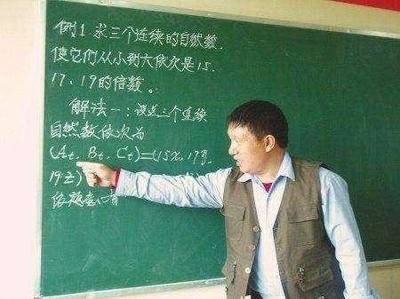 例1 求三个连续的自然数,
使它们从小到大依次是15.
17、19的倍数。
解法一:设这三个连续
自然数依次为
(At, Bt, Ct)=(15x, 17y,
19z)
依题意